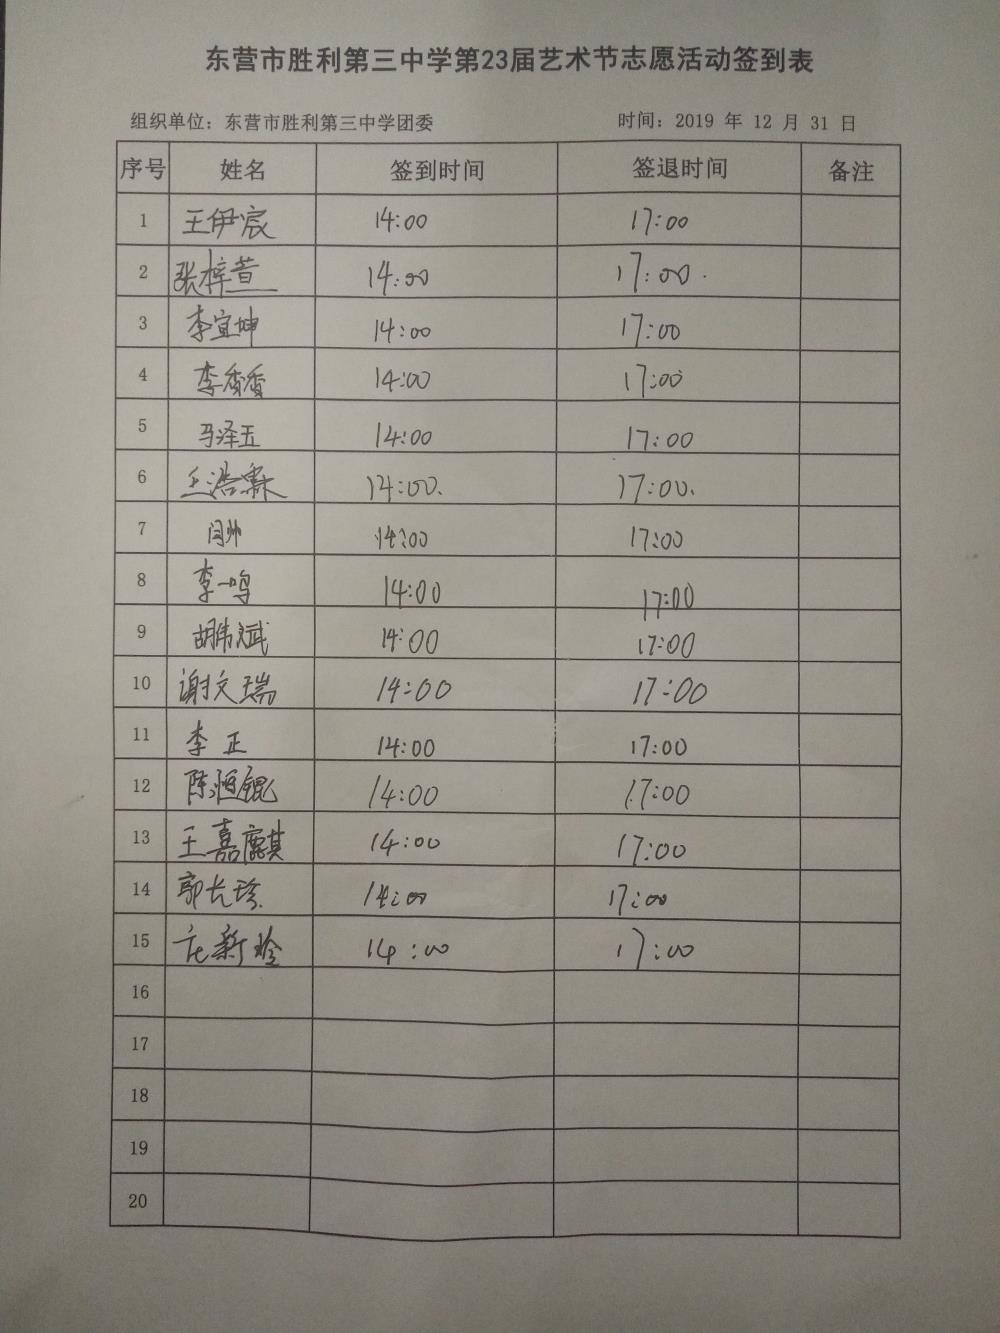 东营市胜利第三中学第23届艺术节志愿活动签到表
组织单位：东营市胜利第三中学团委 时间：2019 年 12 月 31 日
序号 姓名 签到时间 签退时间 备注
1 王伊宸 14:00 17:00
2 张梓萱 14:00 17:00.
3 李宜坤 14:00 17:00
4 李香香 14:00 17:00
5 马泽五 14:00 17:00
6 王浩霖 14:00. 17:00.
7 闫帅 14:00 17:00
8 李一鸣 14:00 17:00
9 胡伟斌 14:00 17:00
10 谢文瑞 14:00 17:00
11 李正 14:00 17:00
12 陈恒锟 14:00 17:00
13 王嘉麒 14:00 17:00
14 郭长珍 14:00 17:00
15 庄新玲 14:00 17:00
16
17
18
19
20